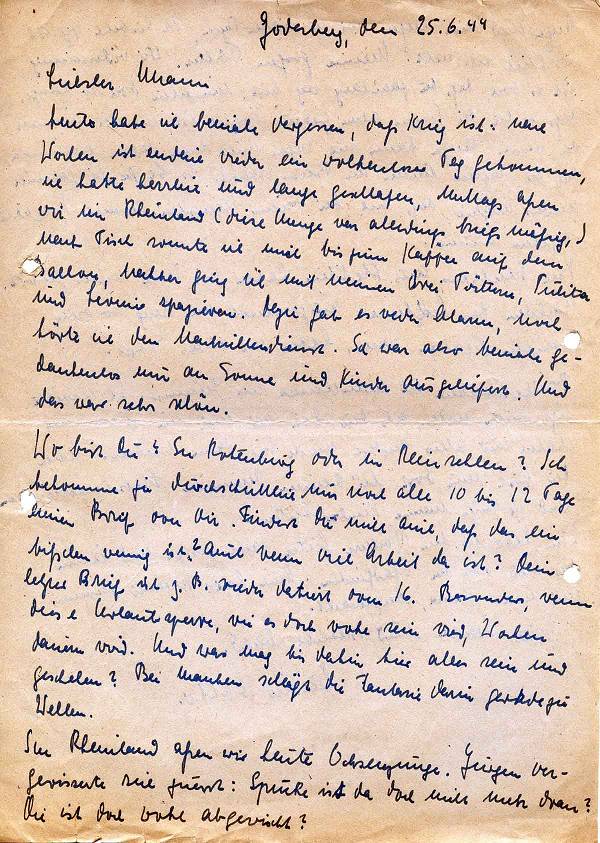 Godesberg, den 25.6.44
Liebster Mann
heute habe ich beinahe vergessen, daß Krieg ist: nach
Wochen ist endlich wieder ein wolkenloser Tag gekommen,
ich hatte herrlich und lange geschlafen, Mittags aßen
wir im Rheinland (diese Menge war allerdings kriegsmäßig,)
Nach Tisch sonnte ich mich bis zum Kaffee auf dem
Balkon, nachher ging ich mit meinen drei Töchtern,
und spazieren. Dazu gab es weder Alarm, noch
hörte ich den Nachrichtendienst. So war also beinahe ge-
dankenlos nur an Sonne und Kinder ausgeliefert. Und
das war sehr schön.
Wo bist Du? In Rotenburg oder in ? Ich
bekomme ja durchschnittlich nur noch alle 10 bis 12 Tage
einen Brief von Dir. Findest Du nicht auch, daß das ein
bißchen wenig ist? Auch wenn viel Arbeit da ist? Dein
letzter Brief ist z. B. wieder datiert vom 16. Besonders, wenn
diese Urlaubsperre, wie es doch wohl sein wird, Wochen
dauern wird. Und was mag bis dahin hier alles sein und
geschehen? Bei Manchen schlägt die Fantasie darin geradezu
Wellen.
Im Rheinland aßen wir heute Ochsenzunge. Jürgen ver-
gewisserte sich zuerst: Spucke ist da doch nicht mehr dran?
Die ist doch wohl abgewischt?